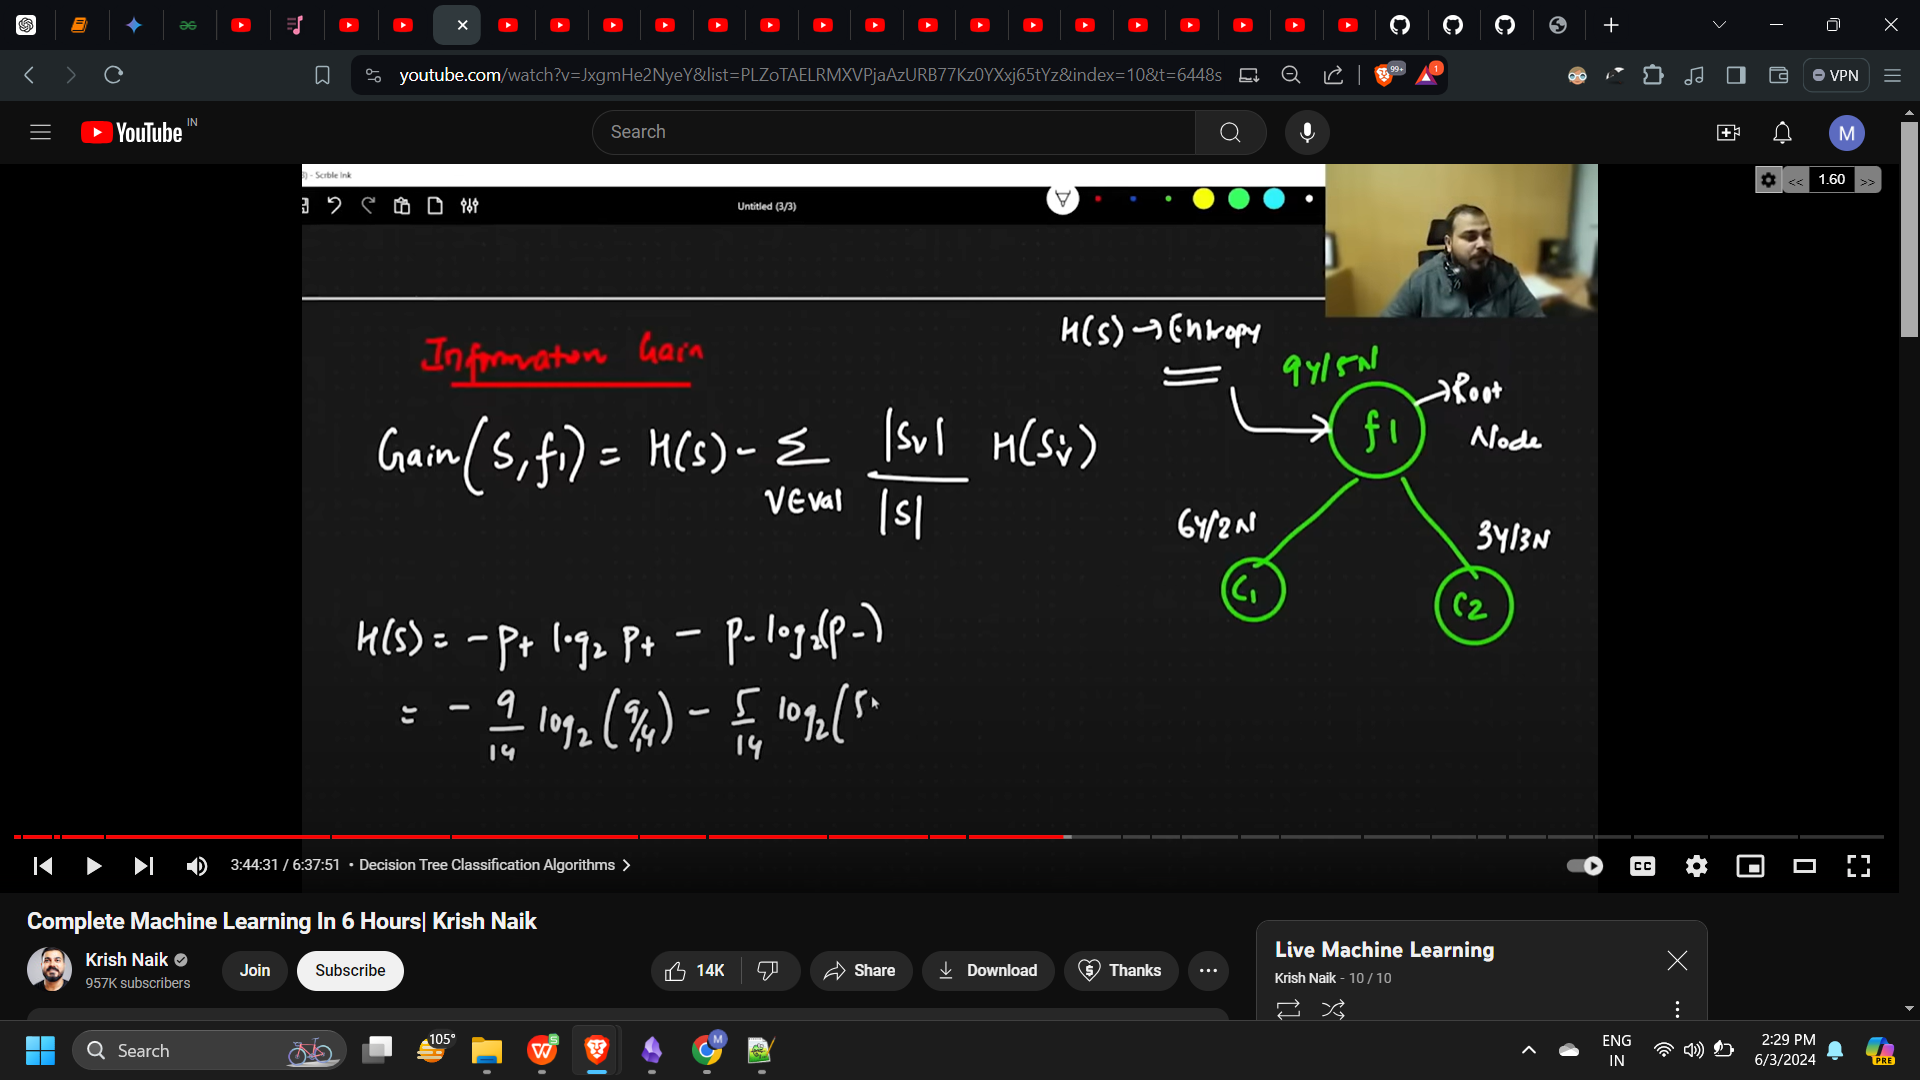 youtube.com/watch?v=JxgmHe2NyeY&list=PLZoTAELRMXVPjaAzURB77Kz0YXxj65tYz&index=10&t=6448s
99+
1
VPN
YouTube IN
Search
M
- Scrble Ink
<< 1.60 >>
Untitled (3/3)
Information Gain
H(S) → Entropy
9Y/5N
→ Root Node
f1
Gain(S, f1) = H(S) - Σ |Sv| / |S| H(Sv)
v∈val
6Y/2N
3Y/3N
C1
C2
H(S) = - P+ log2 P+ - P- log2(P-)
= - 9/14 log2 (9/14) - 5/14 log2(5
3:44:31 / 6:37:51 • Decision Tree Classification Algorithms >
CC
Complete Machine Learning In 6 Hours| Krish Naik
Krish Naik
957K subscribers
Join
Subscribe
14K
Share
Download
Thanks
Live Machine Learning
Krish Naik - 10 / 10
Search
105°
S
M
ENG
IN
2:29 PM
6/3/2024
PRE